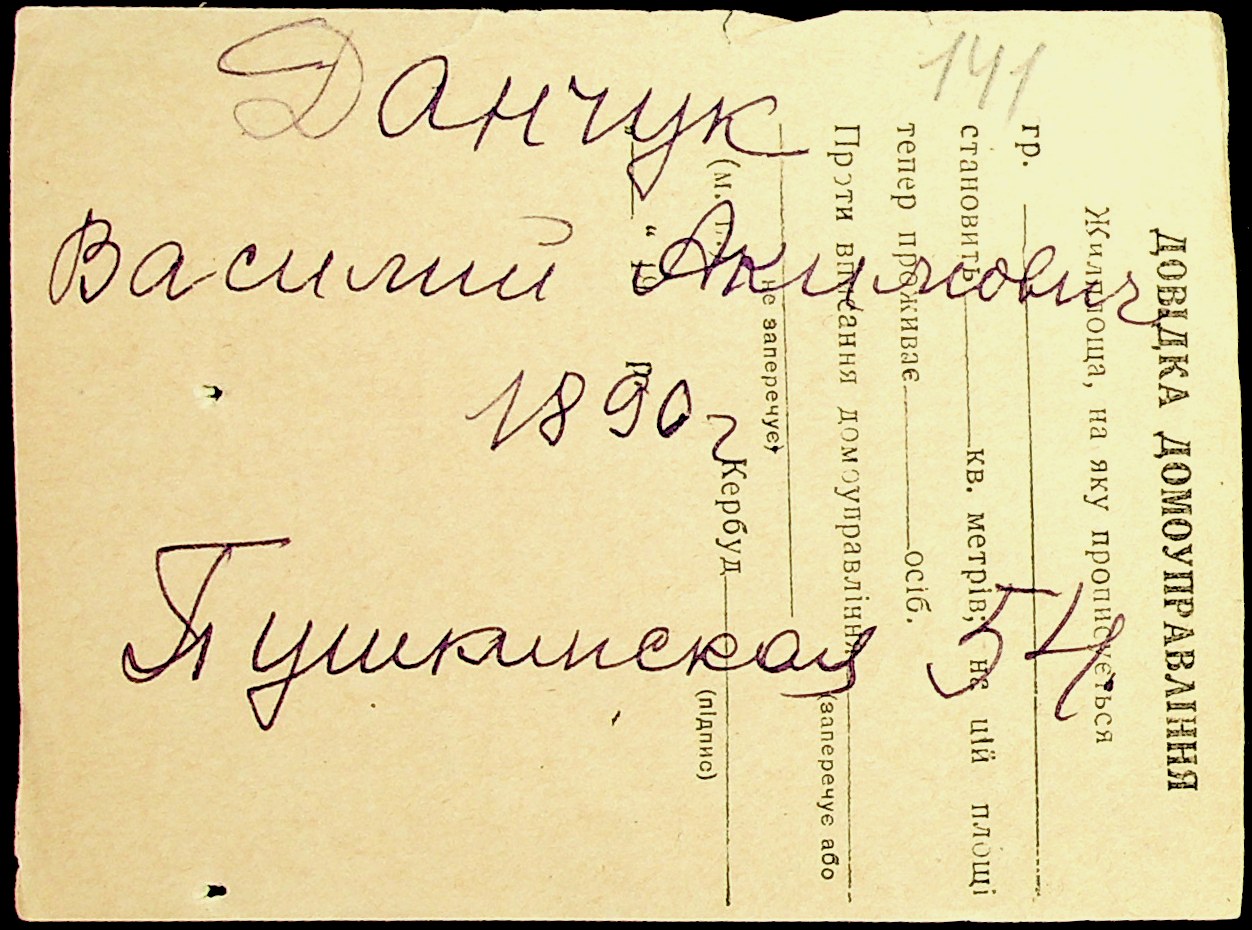 141
Данчук
Василий Акимович
1890 г
Пушкинская 54
ДОВІДКА ДОМОУПРАВЛІННЯ
Житлоща, на яку прописується
гр.
становить кв. метрів; на цій площі
тепер проживає осіб.
Проти вписання домоуправління
(заперечує або
не заперечує)
(м. п.) Кербуд
(підпис)
" " 19 р.